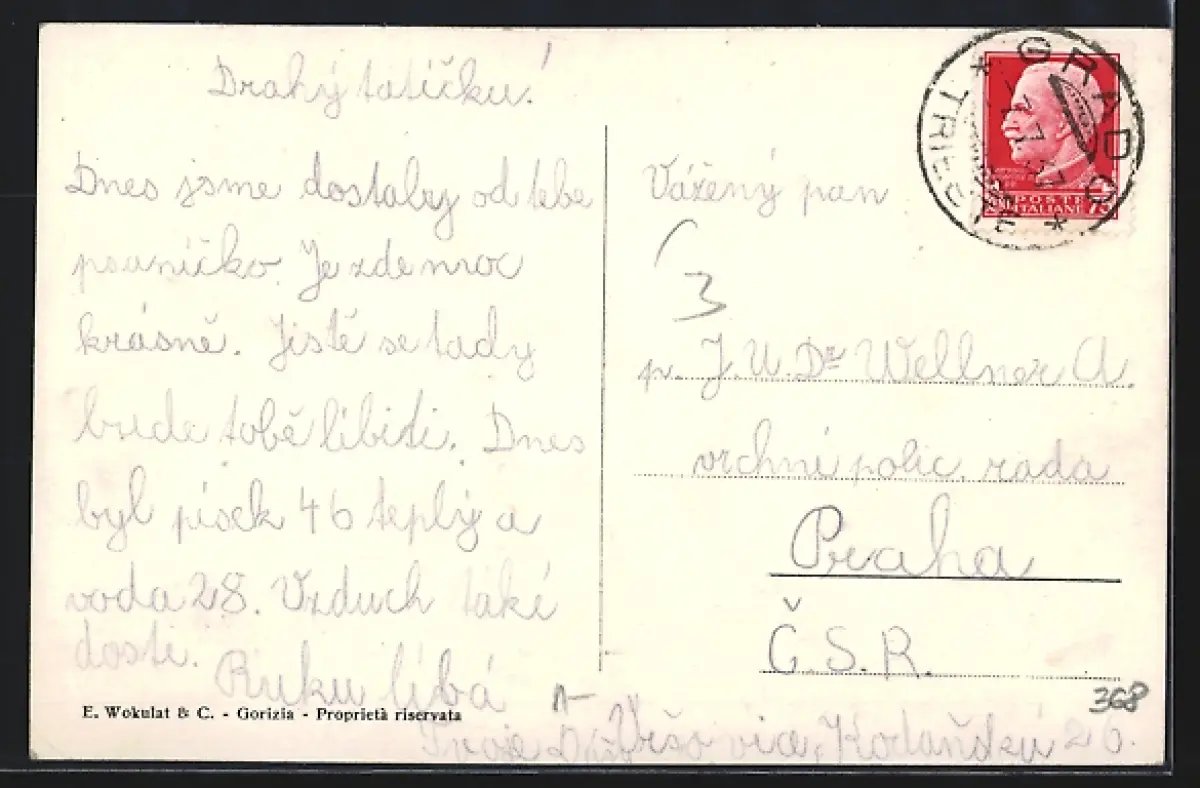 Drahý tatíčku!
Dnes jsme dostaly od tebe
psaníčko. Je zde moc
krásně. Jistě se tady
bude tobě líbiti. Dnes
byl písek 46 teplý a
voda 28. Vzduch také
dosti.
Ruku líbá
Tvoje
E. Wokulat & C. - Gorizia - Proprietà riservata
GRADO
* TRIESTE *
POSTE
ITALIANE 75
Vážený pan
3
p. J.U.Dr Wellner A.
vrchní polic. rada
Praha
Č.S.R.
368
Vršovice, Kodaňská 26.